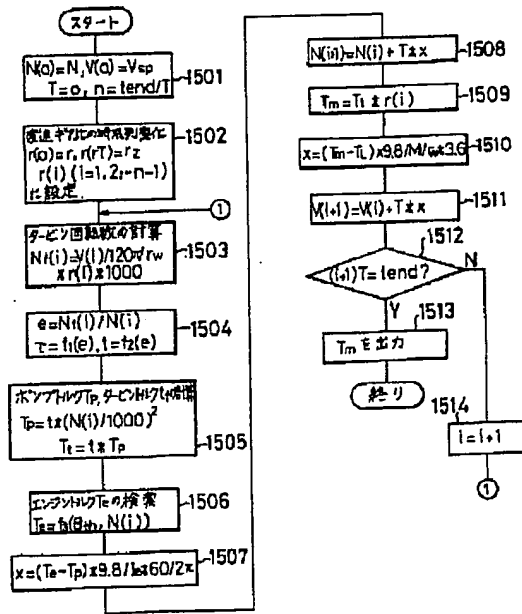 スタート
N(o)=N, V(o)=Vsp
T=o, n=tend/T
1501
変速ギア比の時系列変化
r(o)=r, r(rT)=rz
r(i)(i=1,2,-n-1)
に設定.
1502
①
タービン回転数の計算
Nt(i)=V(i)/120π/rw
*r(i)*1000
1503
e=Nt(i)/N(i)
τ=f1(e), t=f2(e)
1504
ポンプトルクTp,タービントルクTtの計算
Tp=τ*(N(i)/1000)²
Tt=t*Tp
1505
エンジントルクTeの検索
Te=f3(θth, N(i))
1506
x=(Te-Tp)*9.8/Ie*60/2π
1507
N(i+1)=N(i)+T*x
1508
Tm=Tt*r(i)
1509
x=(Tm-TL)*9.8/M/rw*3.6
1510
V(i+1)=V(i)+T*x
1511
1512
(i+1)T=tend?
N
Y
1513
Tmを出力
終り
1514
i=i+1
①